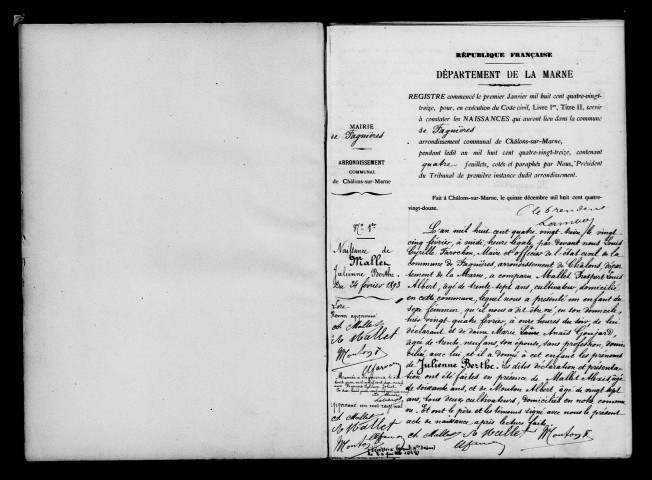 RÉPUBLIQUE FRANÇAISE
DÉPARTEMENT DE LA MARNE
REGISTRE commencé le premier Janvier mil huit cent quatre-vingt-
treize, pour, en exécution du Code civil, Livre Ier, Titre II, servir
à constater les NAISSANCES qui auront lieu dans la commune
de Fagnières
arrondissement communal de Châlons-sur-Marne,
pendant ledit an mil huit cent quatre-vingt-treize, contenant
quatre feuillets, cotés et paraphés par Nous, Président
du Tribunal de première instance dudit arrondissement.
Fait à Châlons-sur-Marne, le quinze décembre mil huit cent quatre-
vingt-douze.
MAIRIE
de Fagnières
ARRONDISSEMENT
COMMUNAL
de Châlons-sur-Marne
No 1er
Naissance de
Mallet
Julienne Berthe
Du 24 février 1893
L'an mil huit cent quatre vingt treize, le vingt
cinq février, à midi, heure légale, par devant nous Louis
Cyrille Farochon, Maire et officier de l'état civil de la
commune de Fagnières, arrondissement de Châlons, dépar
tement de la Marne, a comparu Mallet Prosper Louis
Albert, âgé de trente sept ans, cultivateur, domicilié
en cette commune, lequel nous a présenté un enfant du
sexe féminin, qu'il nous a dit être né, en son domicile,
hier vingt quatre février, à onze heures du soir, de lui
déclarant et de dame Marie Laure Anaïs
âgée de trente neuf ans, son épouse, sans profession, domi
ciliée avec lui, et il a donné à cet enfant les prénoms
de Julienne Berthe. Les dites déclaration et présenta
tion ont été faites en présence de Mallet âgé
de soixante ans, et de Mouton Albert âgé de vingt sept
ans, tous deux cultivateurs, domiciliés en notre commu
ne. Et ont le père et les témoins signé avec nous le présent
acte de naissance, après lecture faite.
Mallet A Mallet Mouton